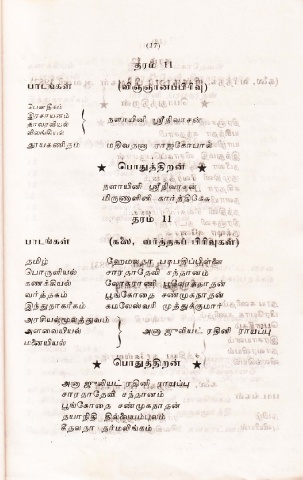 (17)
தரம் 11
பாடங்கள் (விஞ்ஞானப்பிரிவு)
பௌதிகம்
இரசாயனம்
தாவரவியல்
விலங்கியல்
நளாயினி ஸ்ரீநிவாசன்
தூயகணிதம் மதிவதனா ராஜகோபால்
★ பொதுத்திறன் ★
நளாயினி ஸ்ரீநிவாசன்
மிருணாளினி கார்த்திகேசு
தரம் 11
பாடங்கள் (கலை, வர்த்தகப் பிரிவுகள்)
தமிழ் ஹேமலதா பரபதிப்பிள்ளை
பொருளியல் சாரதாதேவி சந்தானம்
கணக்கியல்
வர்த்தகம் பூங்கோதை சண்முகநாதன்
இந்துநாகரீகம் கமலேஸ்வரி முத்துக்குமார்
அரசியல்மூலத்துவம்
அளவையியல்
மனையியல்
அனா ஜுலியட் ரதினி ராயப்பு
★ பொதுத்திறன் ★
அனா ஜுலியட் ரதினி ராயப்பு
சாரதாதேவி சந்தானம்
பூங்கோதை சண்முகநாதன்
தயாநிதி தில்லையம்பலம்
கீதலதா தர்மலிங்கம்